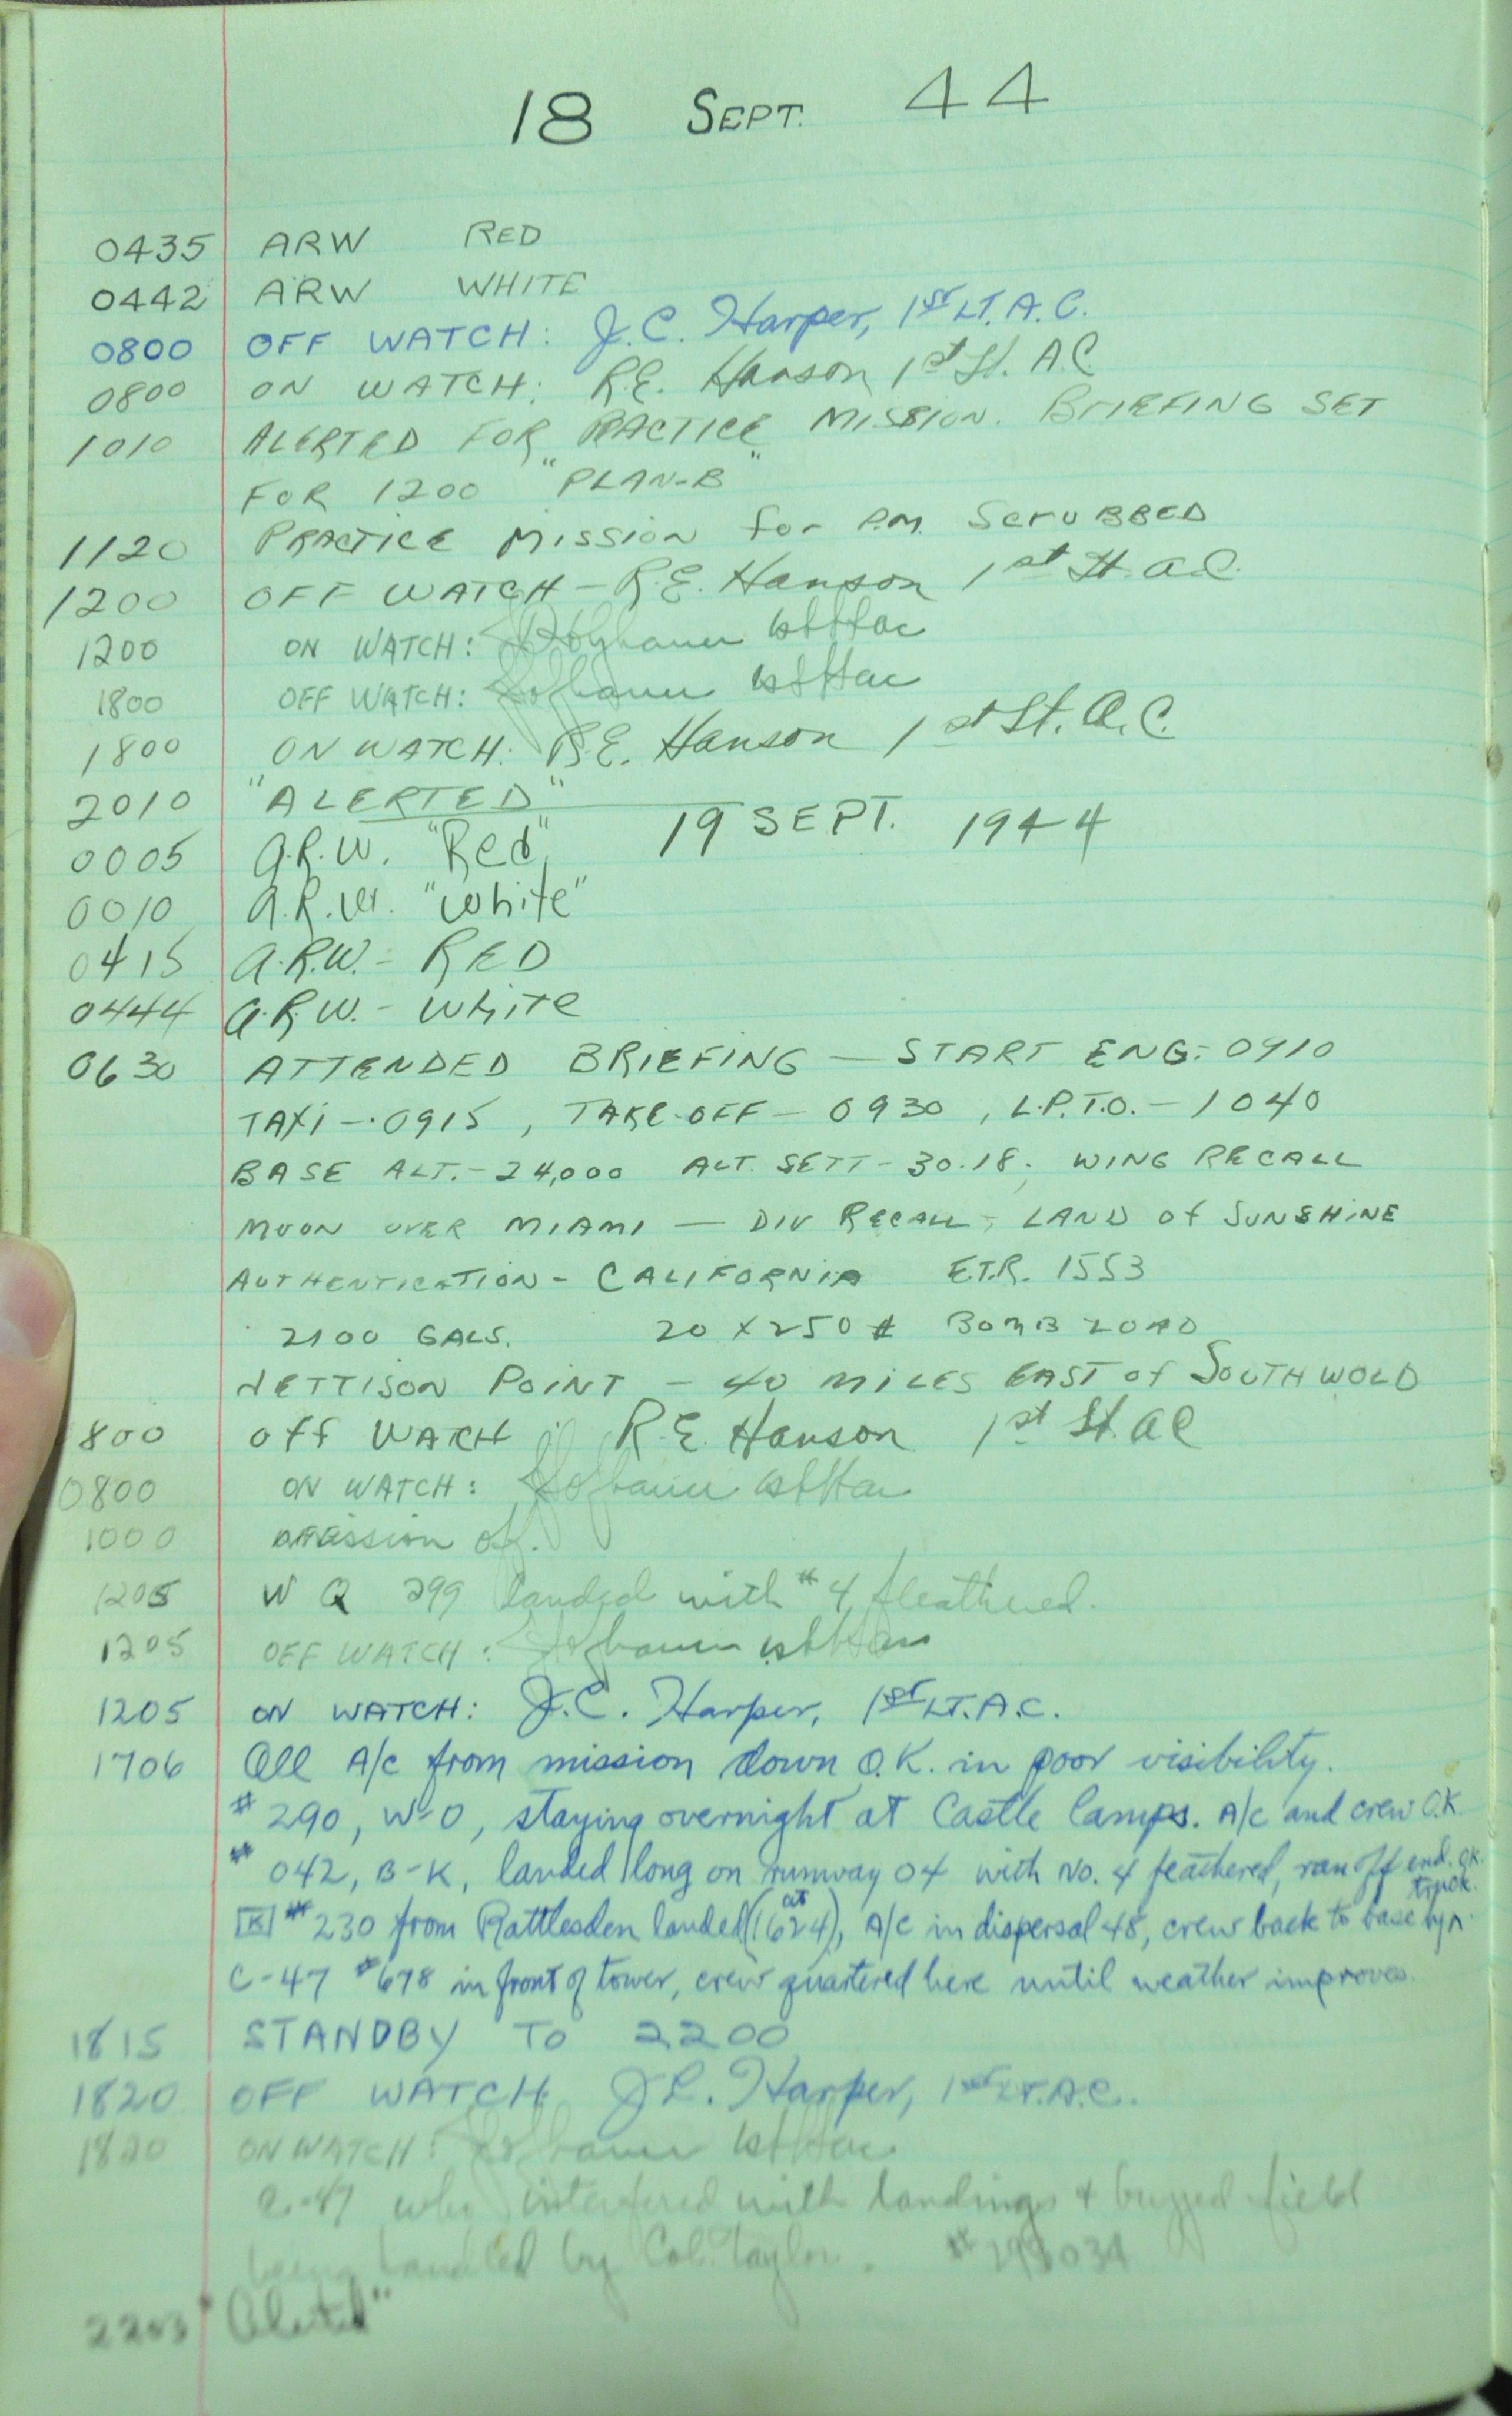 18 SEPT. 44
0435 ARW RED
0442 ARW WHITE
0800 OFF WATCH: J.C. Harper, 1ST LT. A.C.
0800 ON WATCH: R.E. Hanson 1st Lt. A.C
1010 ALERTED FOR PRACTICE MISSION. BRIEFING SET
FOR 1200 "PLAN-B"
1120 PRACTICE MISSION for P.M. SCRUBBED
1200 OFF WATCH - R.E. Hanson 1st Lt. a.c.
1200 ON WATCH: 1st Lt ac
1800 OFF WATCH: 1st Lt ac
1800 ON WATCH: R.E. Hanson 1st Lt. A.C.
2010 "ALERTED"
19 SEPT. 1944
0005 A.R.W. "Red"
0010 A.R.W. "White"
0415 A.R.W. - RED
0444 A.R.W. - WhiTe
0630 ATTENDED BRIEFING — START ENG- 0910
TAXI - 0915, TAKE-OFF - 0930, L.P.T.O. - 1040
BASE ALT. - 24,000 ALT. SETT - 30.18. WING RECALL
MOON OVER MIAMI — DIV RECALL; LAND of SUNSHINE
AUTHENTICATION - CALIFORNIA E.T.R. 1553
2100 GALS. 20 X 250 # BOMB LOAD
JETTISON POINT - 40 MILES EAST of SOUTHWOLD
800 off WATCH R.E. Hanson 1st Lt. AC
0800 ON WATCH: 1st Lt ac
1000 Mission off.
1205 W Q 299 landed with #4 fleathered.
1205 OFF WATCH: 1st Lt ac
1205 ON WATCH: J.C. Harper, 1ST LT. A.C.
1706 All A/c from mission down O.K. in poor visibility.
# 290, W-O, staying overnight at Castle Camps. A/c and crew O.K.
# 042, B-K, landed long on runway 04 with No. 4 feathered, ran off end. OK.
[K] # 230 from Rattlesden landed (at 1624), A/C in dispersal 48, crew back to base by truck.
C-47 #678 in front of tower, crew quartered here until weather improves.
1815 STANDBY TO 2200
1820 OFF WATCH J.C. Harper, 1ST LT. A.C.
1820 ON WATCH: 1st Lt ac
C-47 who interfered with landings & buzzed field
being handled by Col. Taylor.
2203 "Alerted"